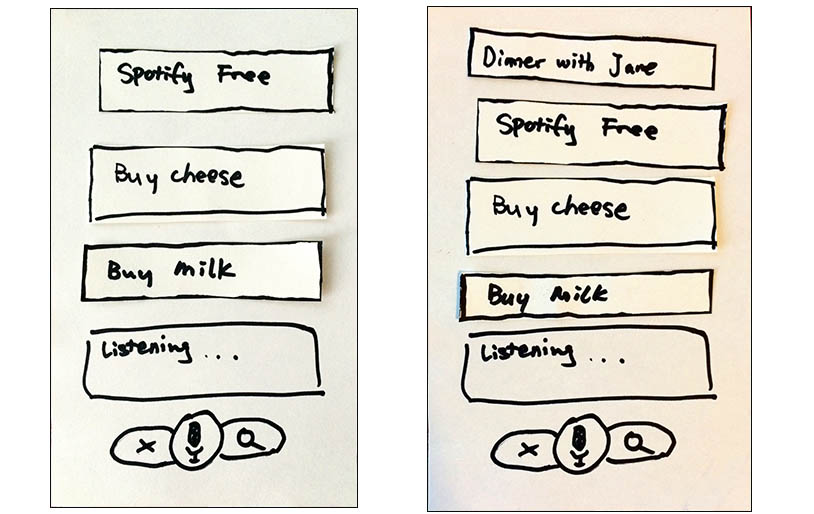 Spotify Free
Buy cheese
Buy milk
Listening ...
Dinner with Jane
Spotify Free
Buy cheese
Buy Milk
Listening ...